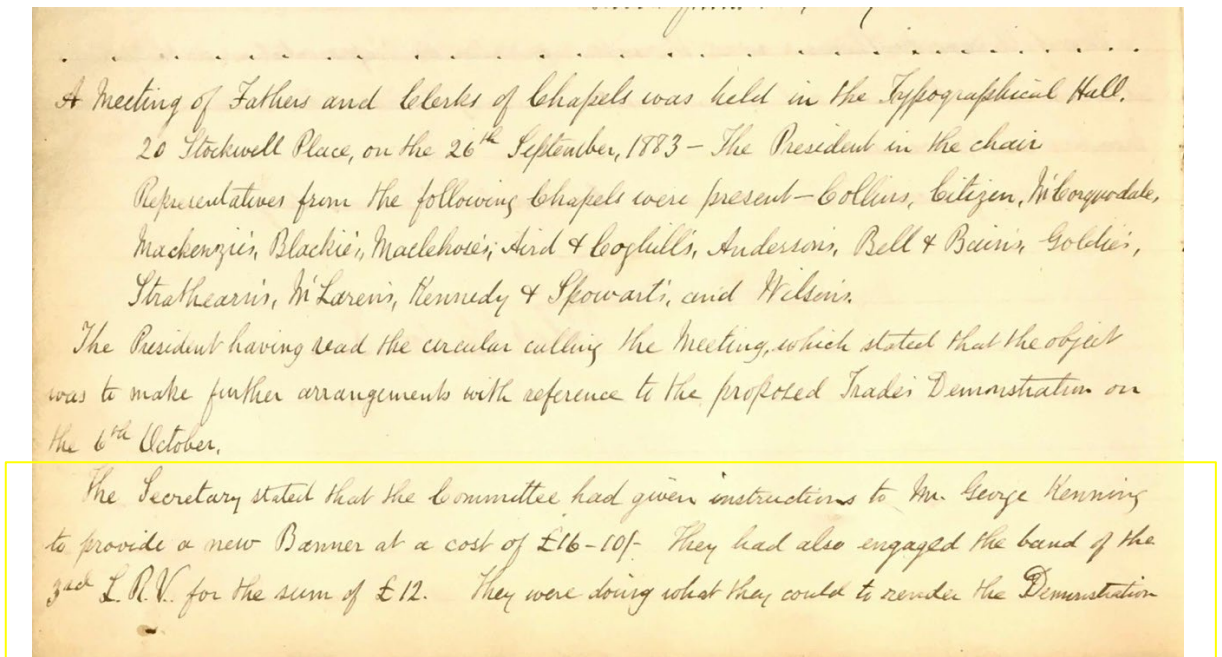 A Meeting of Fathers and Clerks of Chapels was held in the Typographical Hall.
20 Stockwell Place, on the 26th September, 1883 – The President in the chair
Representatives from the following Chapels were present – Collins, Citizen, McCorquodale,
Mackenzie's, Blackie's, Maclehose's, Aird & Coghill's, Anderson's, Bell & Bain's, Goldie's,
Strathearn's, McLaren's, Kennedy & Spowart's, and Wilson's.
The President having read the circular calling the Meeting, which stated that the object
was to make further arrangements with reference to the proposed Trades Demonstration on
the 6th October.
The Secretary stated that the Committee had given instructions to Mr. George Kenning
to provide a new Banner at a cost of £16-10/- They had also engaged the band of the
3rd L.R.V. for the sum of £12. They were doing what they could to render the Demonstration